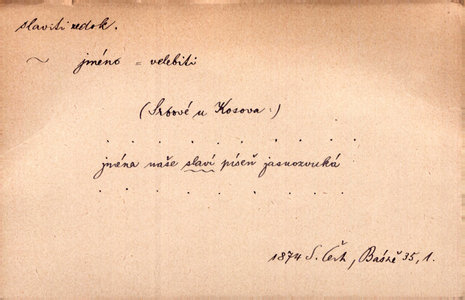 slaviti nedok.
~ jméno = velebiti
(Srbové u Kosova:)
. . . . . . . . . .
jména naše slaví píseň jasnozvuká
. . . . . . . . . .
1874 S. Čech, Básně 35, 1.